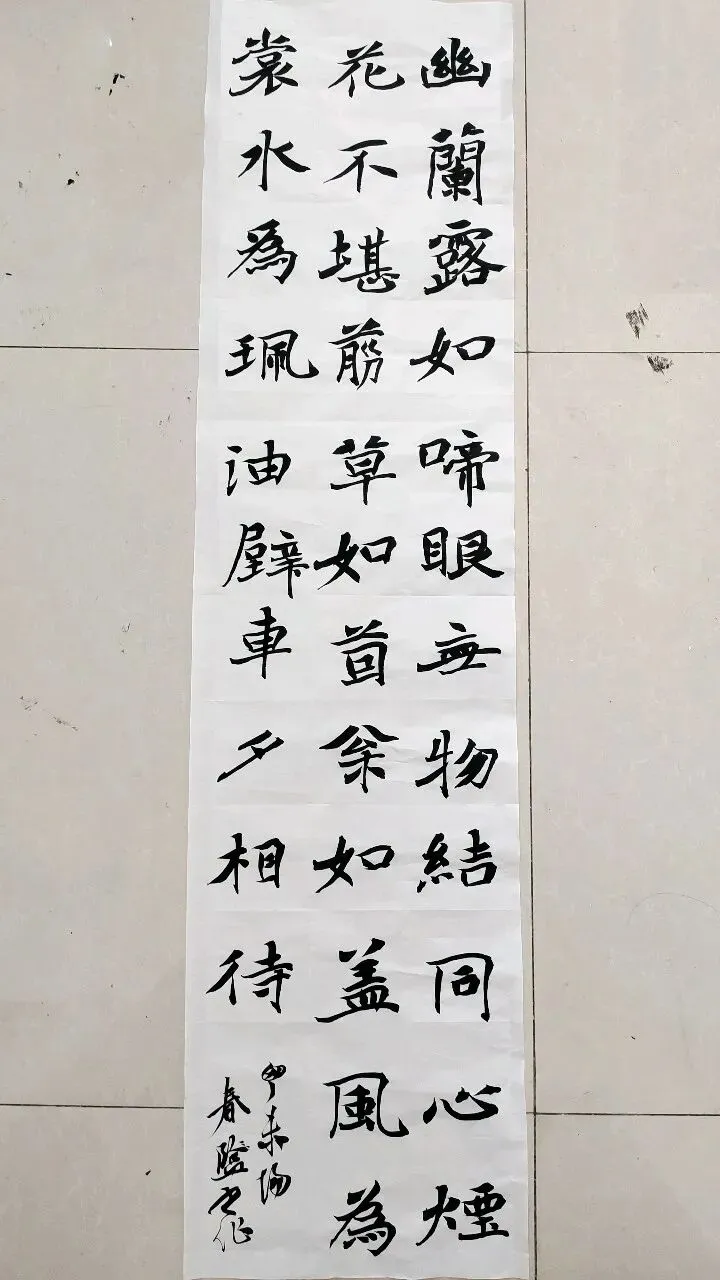 幽蘭露如啼眼無物結同心煙
花不堪剪草如茵枀如盖風為
裳水為珮油壁車夕相待
春臨